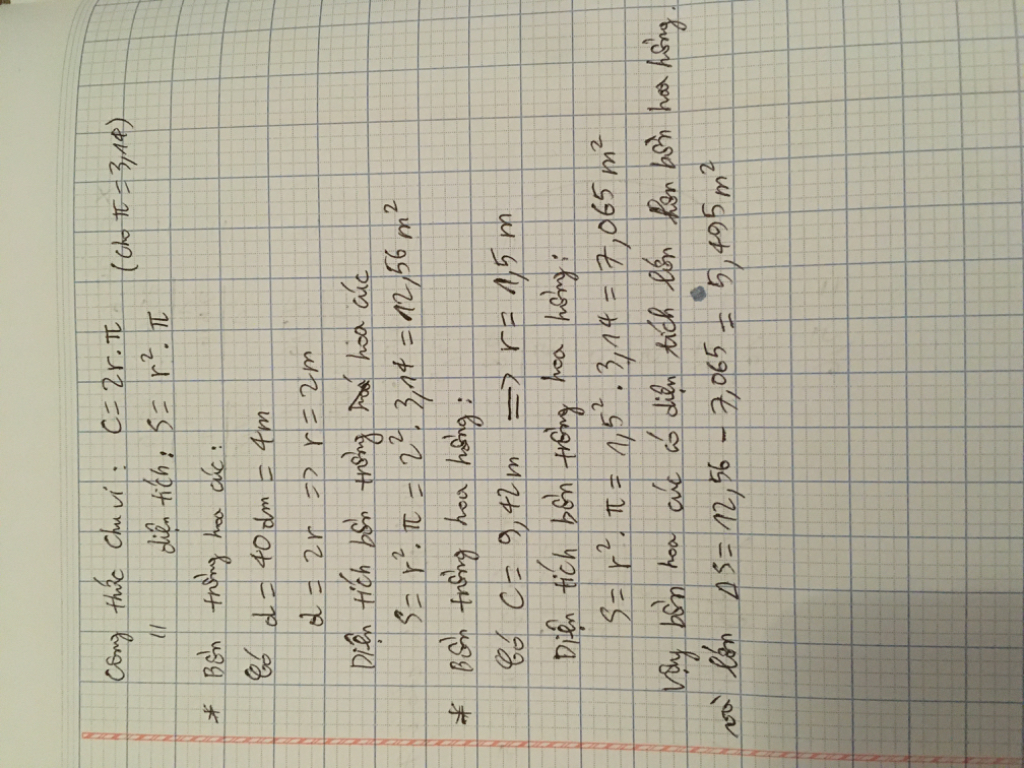 Công thức chu vi : C = 2r.π (cho π = 3,14)
〃 diện tích : S = r². π
* Bồn trồng hoa cúc :
Có d = 40 dm = 4m
d = 2r => r = 2m
Diện tích bồn trồng hoa cúc
S = r². π = 2². 3,14 = 12,56 m²
* Bồn trồng hoa hồng :
Có C = 9,42 m => r = 1,5 m
Diện tích bồn trồng hoa hồng :
S = r². π = 1,5². 3,14 = 7,065 m²
Vậy bồn hoa cúc có diện tích lớn hơn bồn hoa hồng.
và lớn ΔS = 12,56 - 7,065 = 5,495 m²